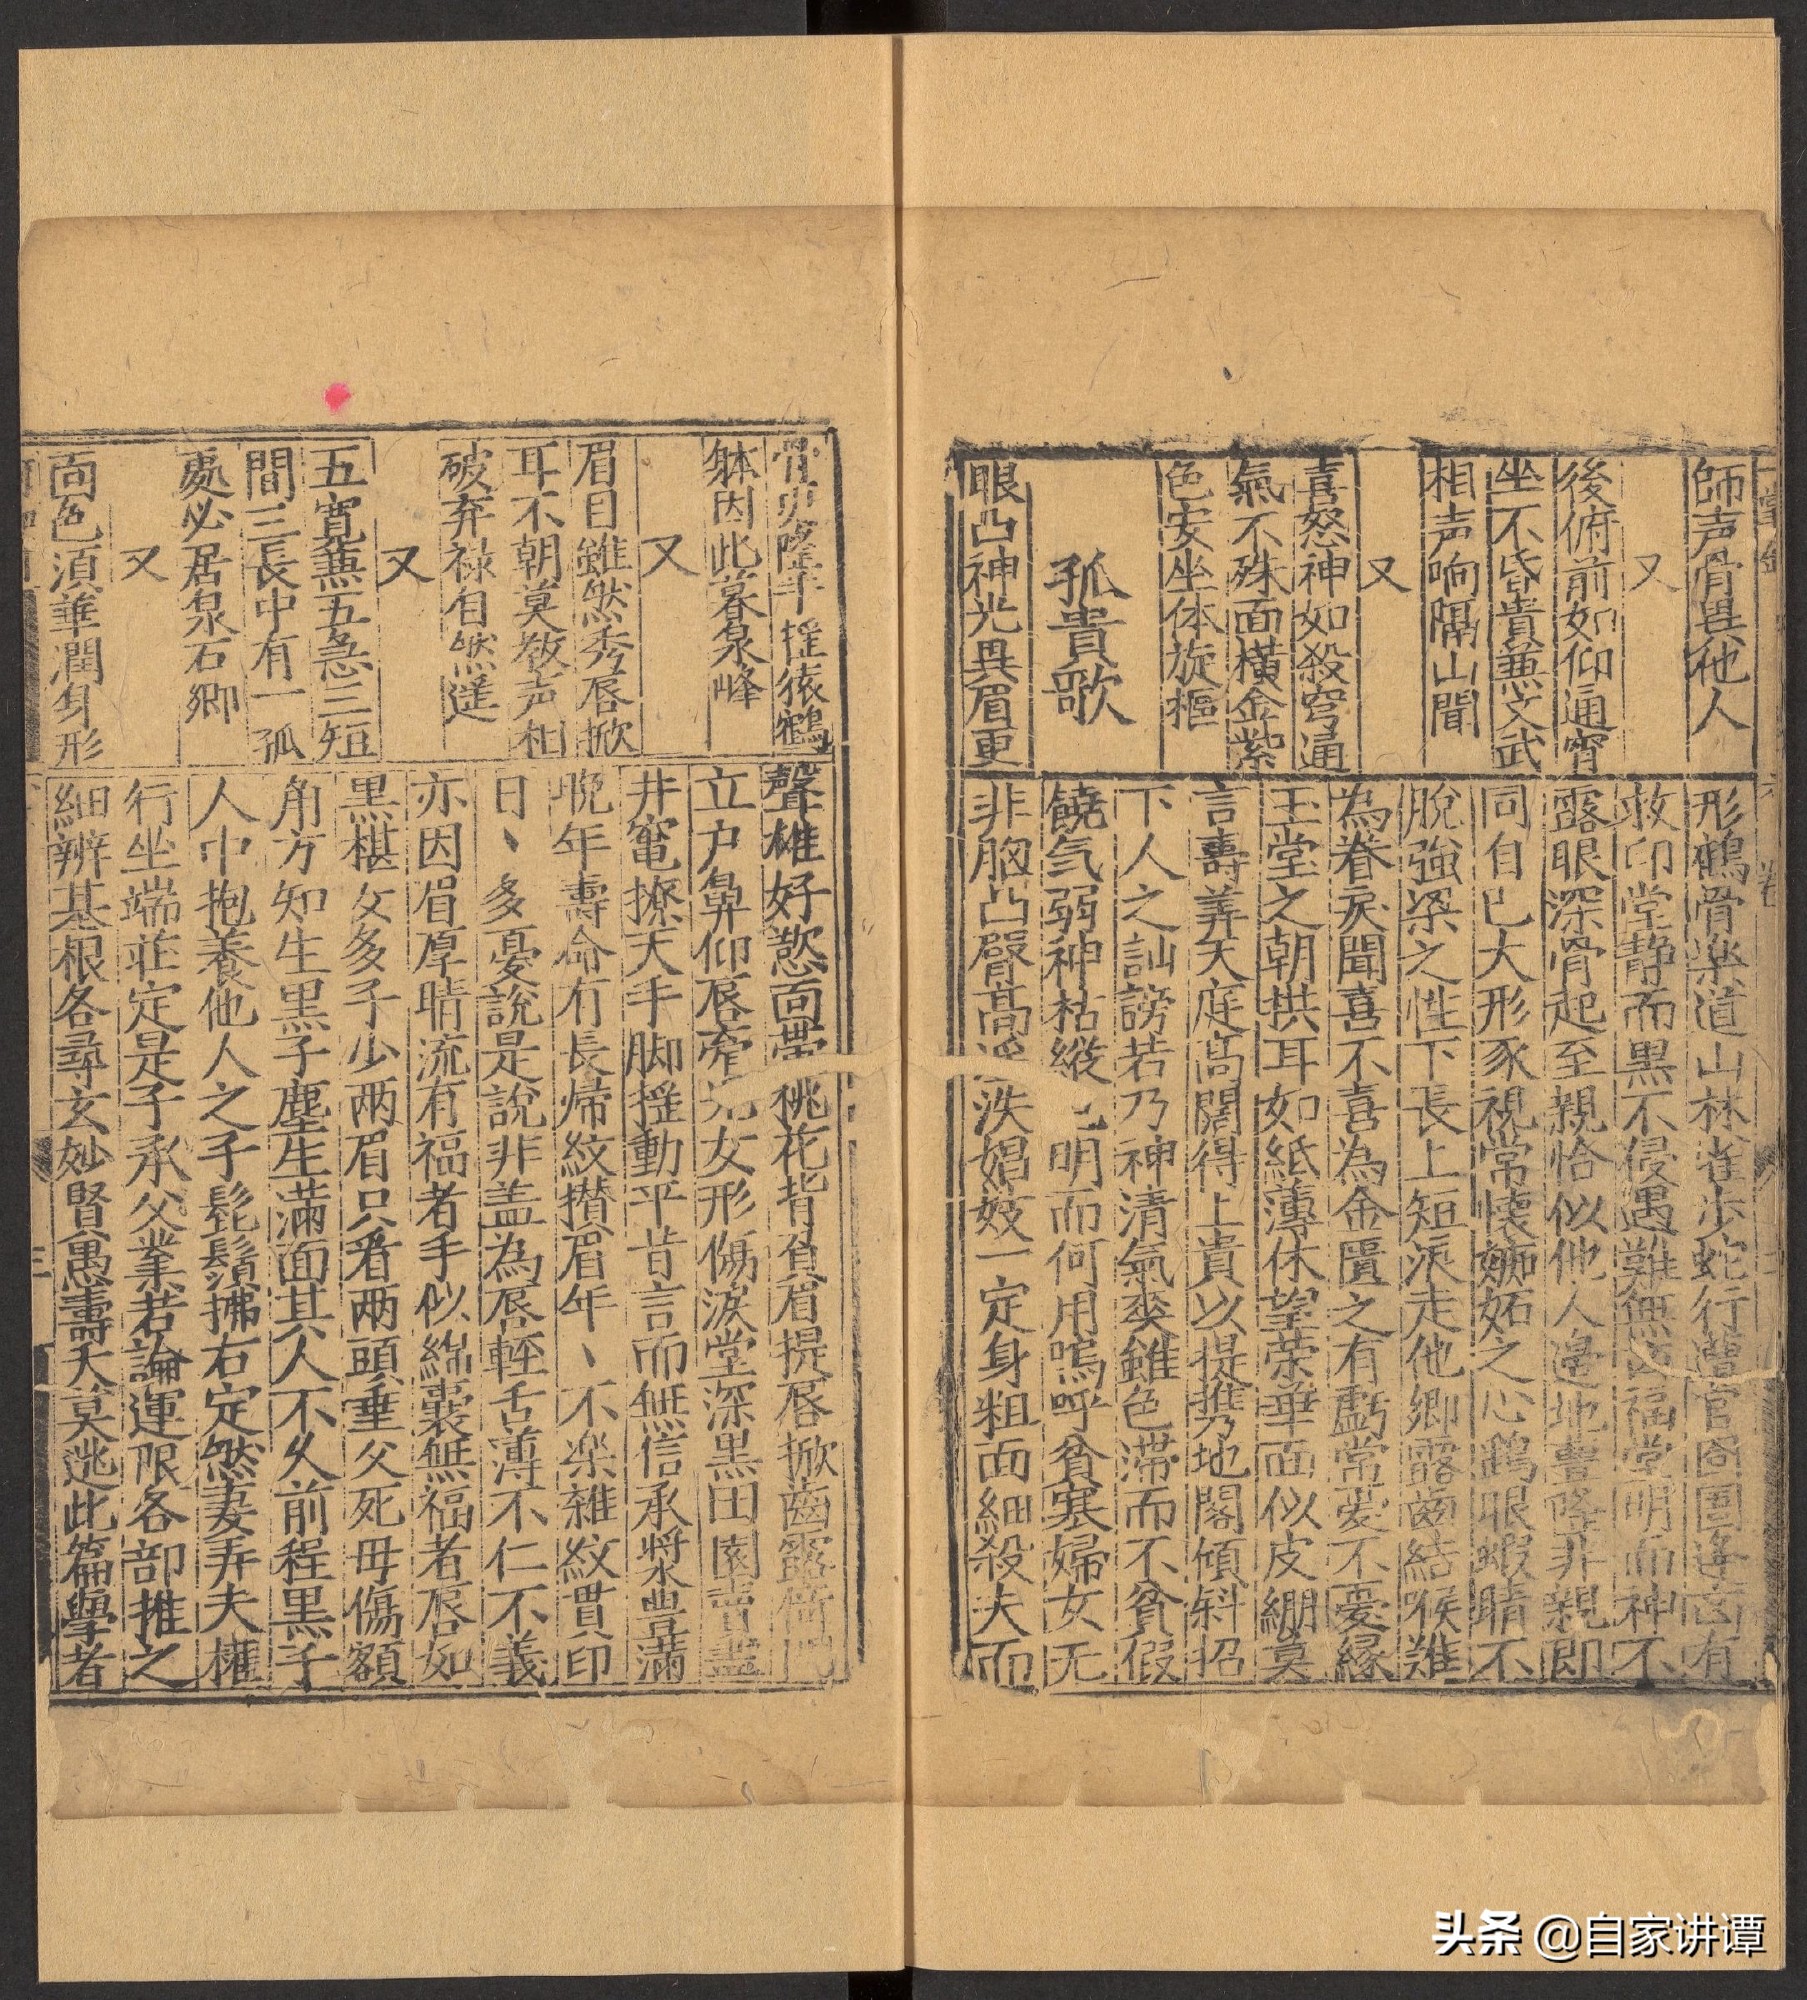 師声骨異他人
又
後俯前如仰通宵
坐不昏貴兼文武
相声响隔山聞
又
喜怒神如殺穹通
氣不殊面橫金紫
色安坐体旋樞
孤貴歌
眼凸神光異眉更
形鶴骨楽道山林雀步蛇行遭官囹圄逢凶有
救印堂静而黒不侵遇難無凶福堂明而神不
露眼深骨起至親恰似他人邉地豊隆非親即
同自己大形豕視常懷嫉妬之心鷄眼蝦睛不
脫強梁之性下長上短派走他鄉露齒結喉難
為眷戾聞喜不喜為金匱之有虧常愛不憂緣
玉堂之朝拱耳如紙薄休望荣華面似皮繃莫
言壽筭天庭高闊得上貴以提携地閣傾斜招
下人之訕謗若乃神清氣爽雖色滞而不貧假
饒气弱神枯縱明而何用嗚呼貧寒婦女无
非胸凸臀高泆娼妓一定身粗面細殺夫而
骨更隆手揺猿鶴
躰因此暮泉峰
又
眉目雖然秀唇掀
耳不朝莫教声相
破弃禄自然遥
又
五寛兼五急三短
間三長中有一孤
處必居泉石鄉
又
面色湏華潤身形
聲雄好慾面帶桃花背負眉提唇掀齒露倚門
立户鼻仰唇牽女形傷淚堂深黒田園賣盡
井竃撩天手脚揺動平昔言而無信承漿豊滿
晩年壽命有長帰紋攅眉年丶不楽雜紋貫印
日丶多憂說是說非盖為唇輕舌薄不仁不義
亦因眉厚睛流有福者手似綿囊無福者唇如
黒棋女多子少兩眉只看兩頭垂父死毋傷額
角方知生黒子塵生滿面其人不久前程黒子
人中抱養他人之子髭鬚拂右定然妻弄夫權
行坐端莊定是子承父業若論運限各部推之
細辨基根各尋玄妙賢愚壽夭莫逃此篇學者
头条 @自家讲谭